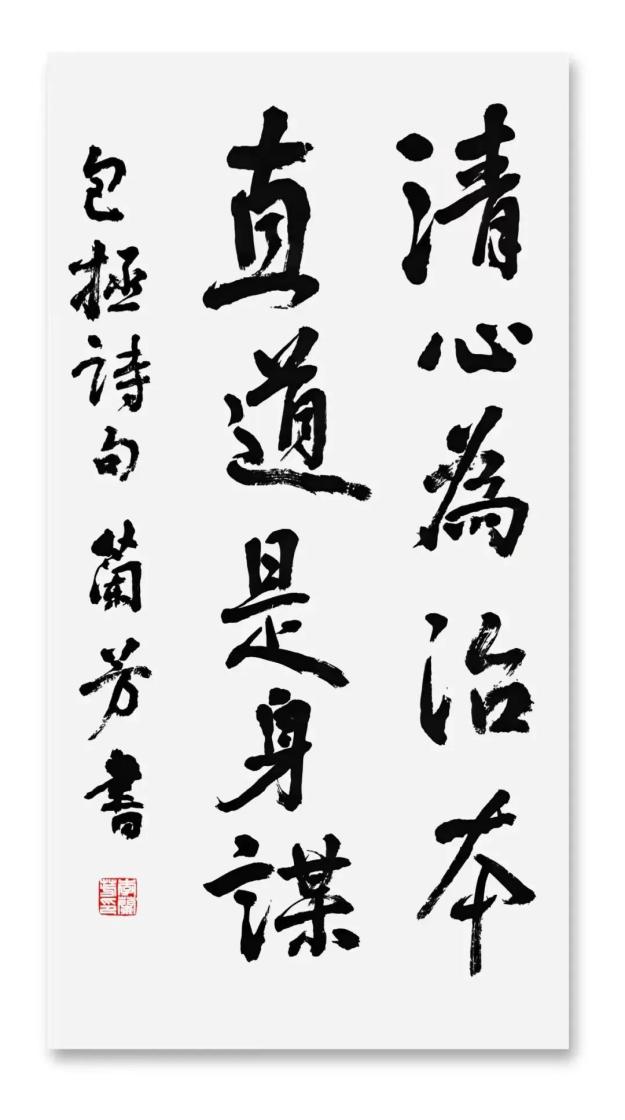 清心為治本
直道是身謀
包拯詩句 蘭芳書